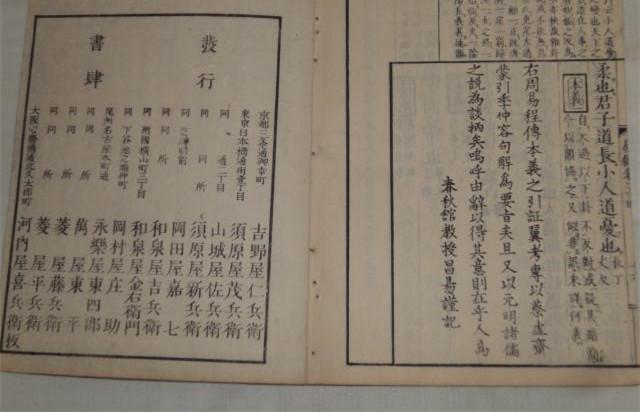 柔也君子道長小人道憂也
本義
自大過以下卦不反對或疑其錯簡
今以韻協之又似非誤未詳何義
右周易程傳本義之引証翼考專以蔡虚齋
蒙引李仲容句解為要旨矣且又以元明諸儒
之説為談柄矣嗚呼由辭以得其意則在乎人焉
春秋舘教授昌易謹記
發行
書肆
京都三条通御幸町 吉野屋仁兵衛
東京日本橋通南壹丁目 須原屋茂兵衛
同 通二丁目 山城屋佐兵衛
同 同所 須原屋新兵衛
同 芝神明前 岡田屋嘉七
同 同所 和泉屋吉兵衛
同 兩國横山町三丁目 和泉屋金右衛門
同 下谷池之端仲町 岡村屋庄助
尾州名古屋本町通 永樂屋東四郎
同 同所 萬屋東平
同 同所 菱屋藤兵衛
同 同所 菱屋平兵衛
大阪心斎橋通北久太郎町 河内屋喜兵衛板